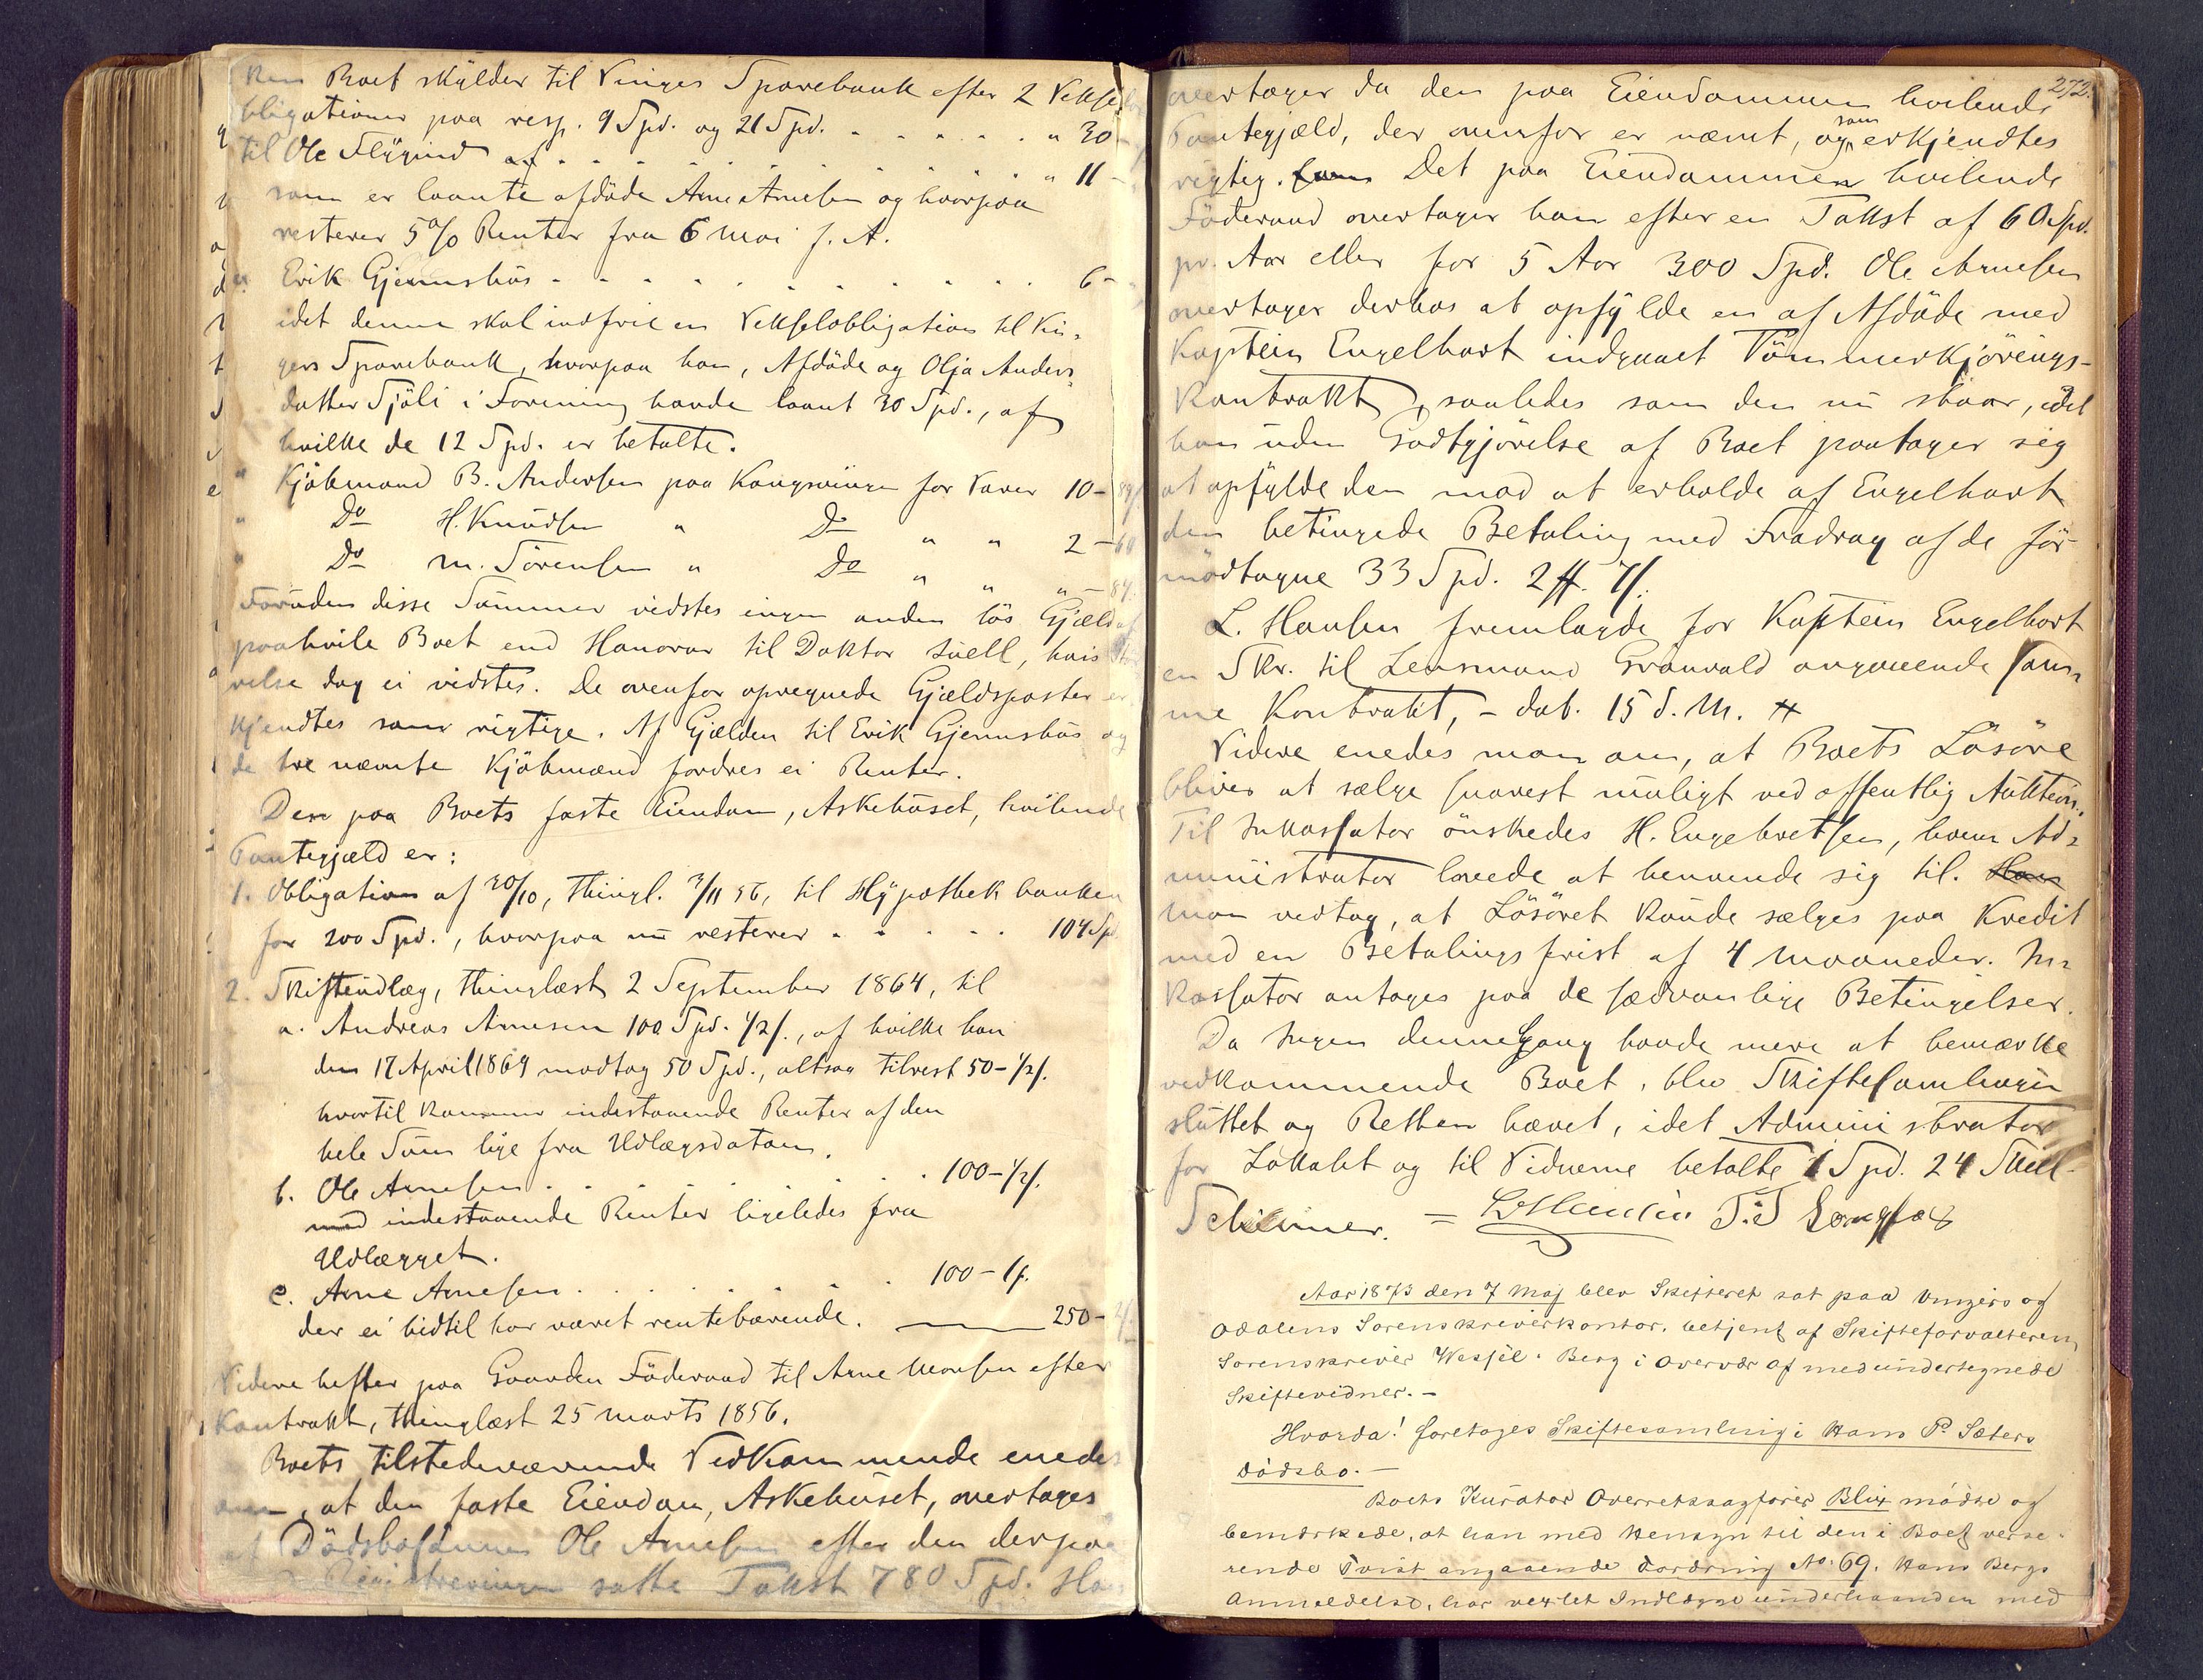 Boet skylder til Vinges Sparebank efter 2 Veksel
bligationer paa resp. 9 Spd. og 21 Spd. . . . . . " 30 -
til Ole Flygind af . . . . . . . . " 11 -
som er laante afdöde Arne Arnesen og hvorpaa
resterer 5% Renter fra 6 Mai f. A.
" Erik Gjermshus . . . . . . . . . 6 -
idet denne skal indfrie en Vekselobligation til Vin-
gers Sparebank, hvorpaa han, Afdöde og Olja Anders-
datter Sjöli i Forening havde laant 30 Spd., af
hvilke de 12 Spd. er betalte.
" Kjöbmand B. Andersen paa Kongsvinger for Varer 10 - 89
" Do H. Knudsen " Do " " 2 - 60
" Do M. Sörensen " Do " " " - 84.
Foruden disse Summer vidstes ingen anden lös Gjæld at
paahvile Boet end Honorar til Doktor Snell, hvis Stör
relse dog ei vidstes. De ovenfor opregnede Gjældsposter er
kjendtes som rigtige. Af Gjælden til Erik Gjermshus og
de tre nævnte Kjöbmænd fordres ei Renter.
Den paa Boets faste Eiendom, Askehuset, hvilende
Pantegjæld er:
1. Obligation af 30/10, thingl. 3/11 56, til Hypothekbanken
for 200 Spd., hvorpaa nu resterer . . . . . 104 Sp
2. Skifteudlæg, thinglæst 2 September 1864, til
a. Andreas Arnesen 100 Spd. 1/2 s., af hvilke han
den 17 April 1869 modtog 50 Spd., altsaa tilrest 50 - 1/2 s.
hvortil kommer indestaaende Renter af den
hele Sum lige fra Udlægsdatoen.
b. Ole Arnesen . . . . . . . . 100 - 1/2 s.
med indestaaende Renter ligeledes fra
Udlægget.
c. Arne Arnesen . . . . . . . 100 - 1 s.
der ei hidtil har været rentebærende. 250 - 2 s.
Videre hefter paa Gaarden Föderaad til Arne Monsen efter
Kontrakt, thinglæst 25 Marts 1856.
Boets tilstedeværende Vedkommende enedes
om, at den faste Eiendom, Askehuset, overtages
af Dödsbosönnen Ole Arnesen efter den derpaa
Registreringen satte Takst 780 Spd. Han
272.
overtager da den paa Eiendommen hvilende
Pantegjæld, der ovenfor er nævnt, og som erkjendtes
rigtig. Det paa Eiendommen hvilende
Föderaad overtager han efter en Takst af 60 Spd.
pr. Aar eller for 5 Aar 300 Spd. Ole Arnesen
overtager derhos at opfylde en af Afdöde med
Kaptein Engelhart indgaaet Tömmerkjörings-
kontrakt, saaledes som den nu staar, idet
han uden Godtgjörelse af Boet paatager sig
at opfylde den mod at erholde af Engelhart
den betingede Betaling med Fradrag af de for
modtagne 33 Spd. 2 ff. 7 s.
L. Hansen fremlagde for Kaptein Engelhart
en Skr. til Lensmand Granvald angaaende sam-
me Kontrakt, - dat. 15 d. M.
Videre enedes man om, at Boets Lösöre
bliver at sælge snarest muligt ved offentlig Auktion.
Til Inkassator önskedes H. Engebretsen, hvem Ad-
ministrator lovede at henvende sig til.
Man vedtog, at Lösöret kunde sælges paa Kredit
med en Betalingsfrist af 4 Maaneder. In-
kassator antages paa de sædvanlige Betingelser.
Da Ingen denne Gang havde mere at bemærke
vedkommende Boet, blev Skiftesamlingen
sluttet og Retten hævet, idet Administrator
for Lokalet og til Vidnerne betalte 1 Spd. 24 Skill.
Schirmer. = L. Hansen T. S. Longfos
Aar 1873 den 7 Maj blev Skifteret sat paa Vingers og
Odalens Sorenskriverkontor, betjent af Skifteforvalteren,
Sorenskriver Wessel-Berg i Overvær af medundertegnede
Skiftevidner. -
Hvorda! foretoges Skiftesamling i Hans P. Sæters
Dödsbo. -
Boets Kurator Overretssagförer Blix mödte og
bemærkede, at han med Hensyn til den i Boet verse-
rende Tvist angaaende Fordring No 69, Hans Bergs
Anmeldelse, har vexlet Indlægge underhaanden med